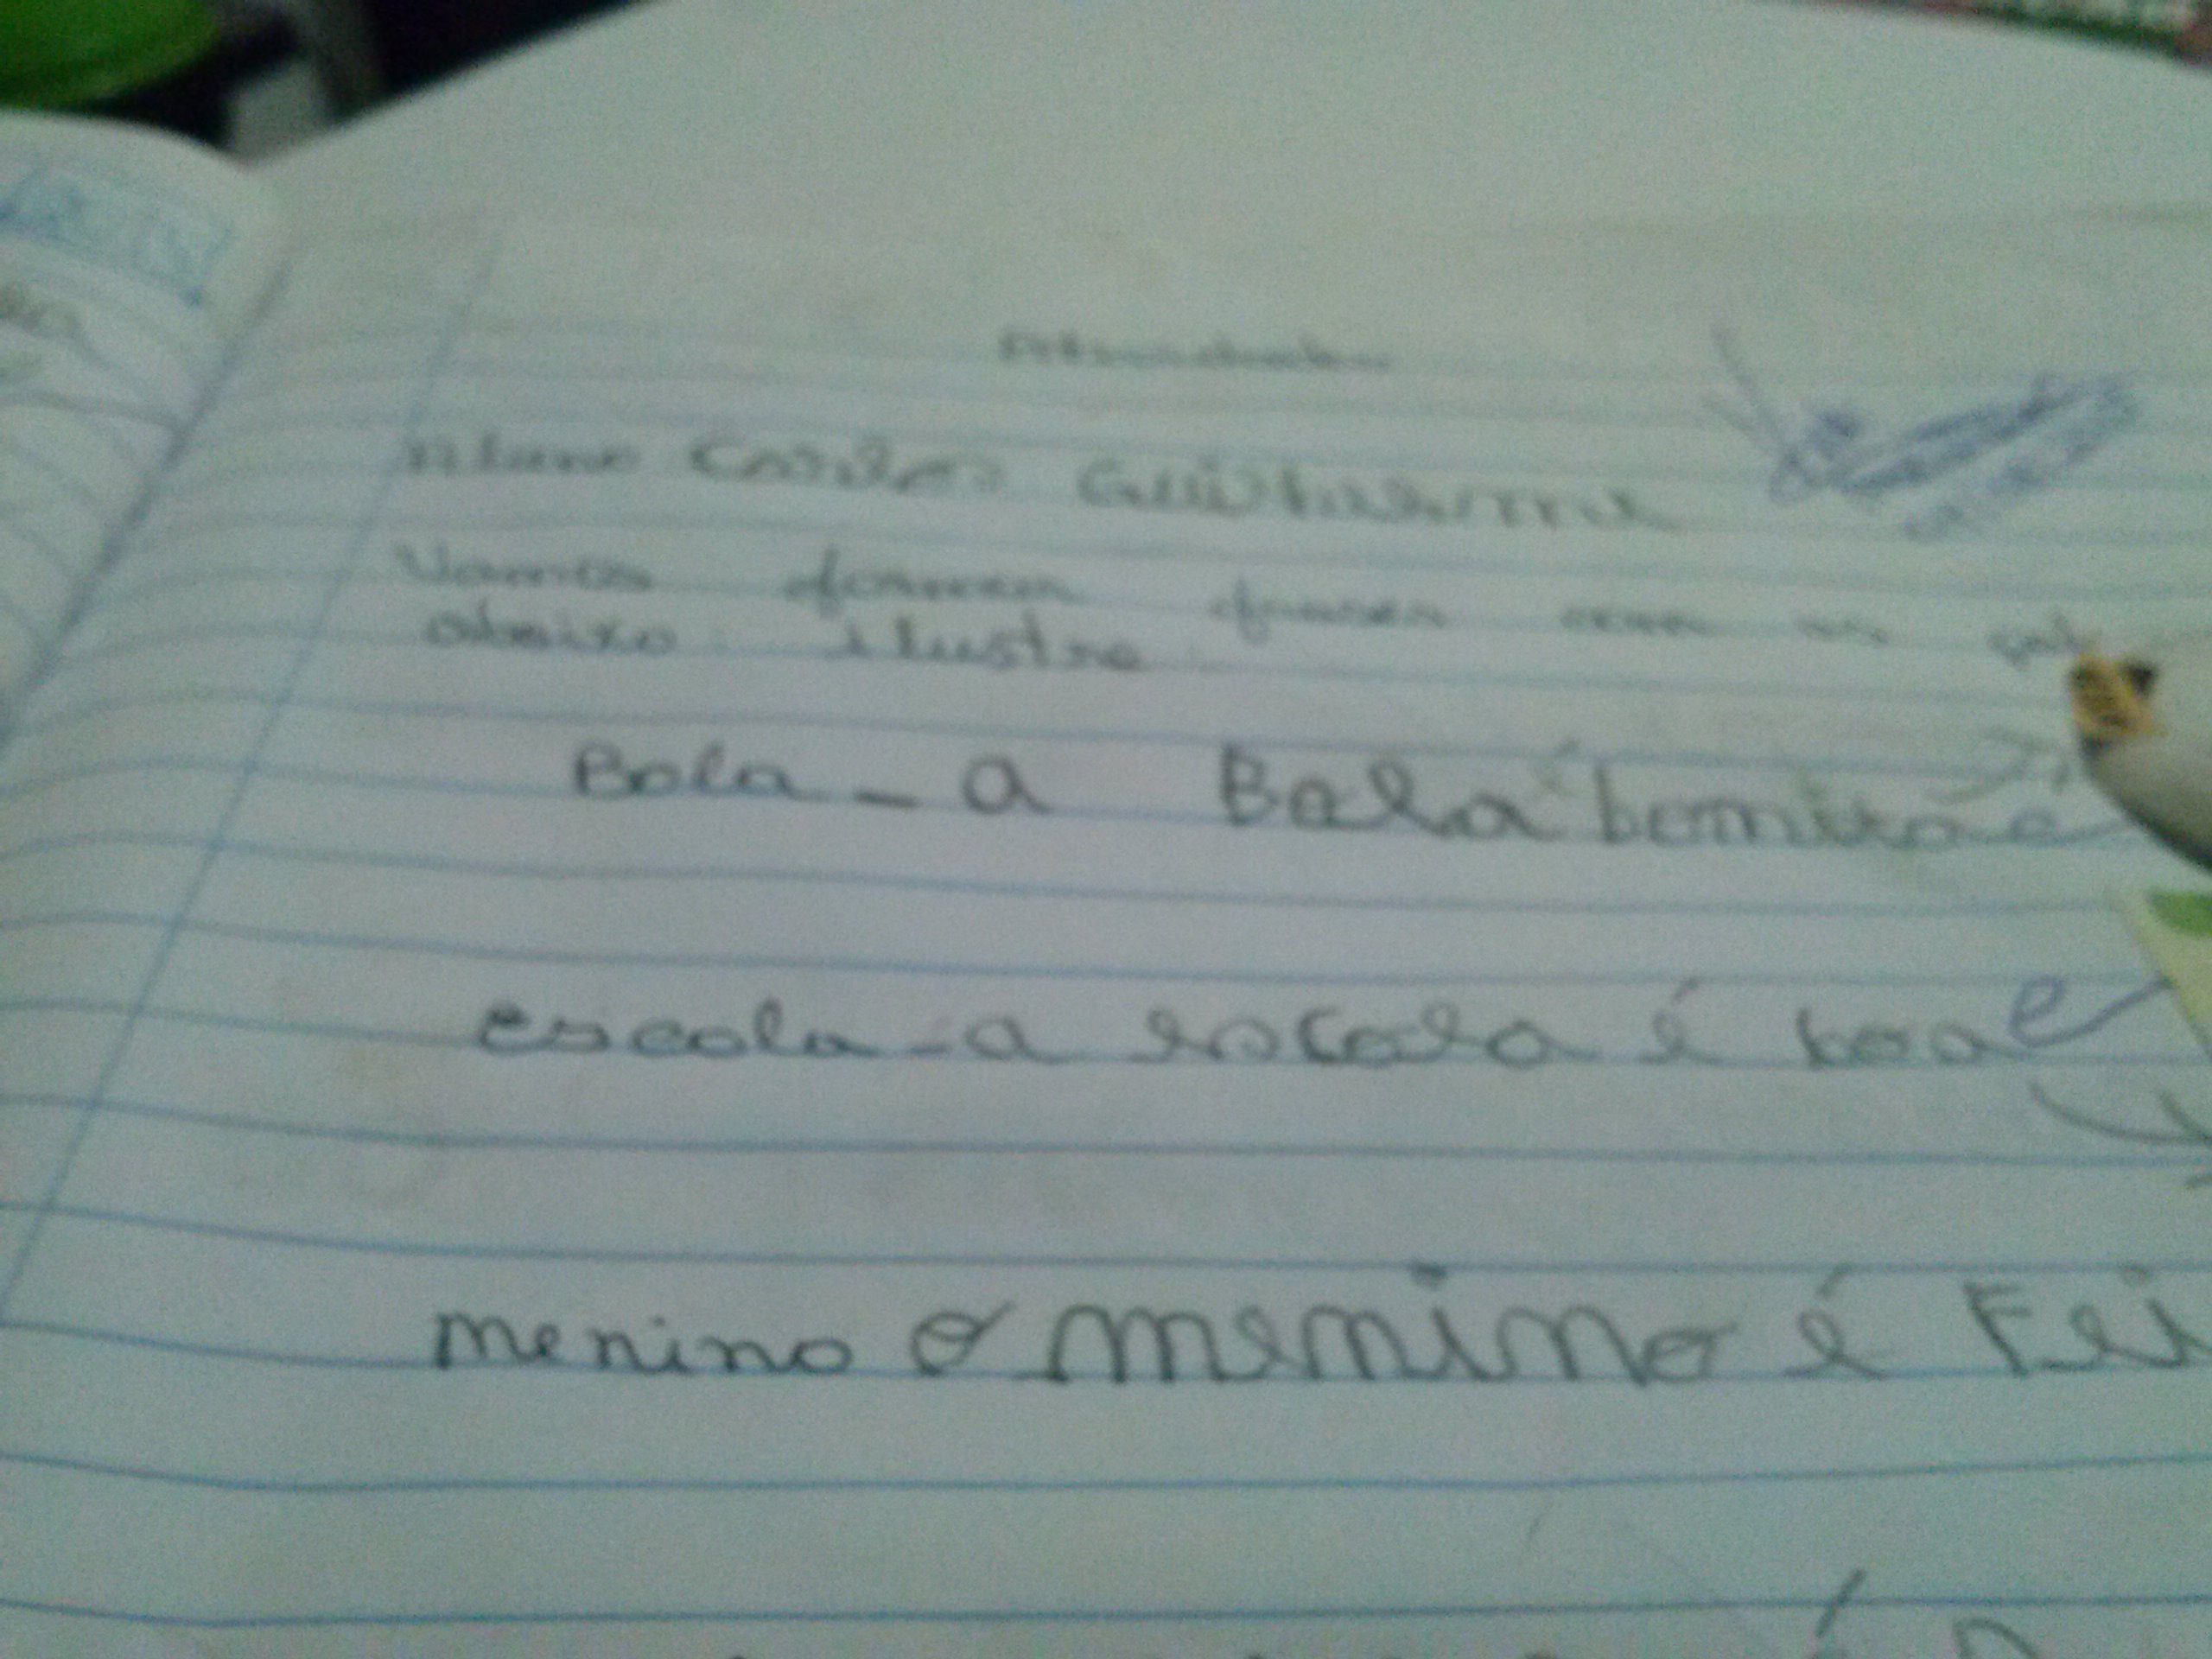 Atividade
Aluno Carlos Guilherme
Vamos formar frases com as
abaixo ilustre
Bola - a Bola é bomita
escola - a escola é boa
menino o menino é Fei